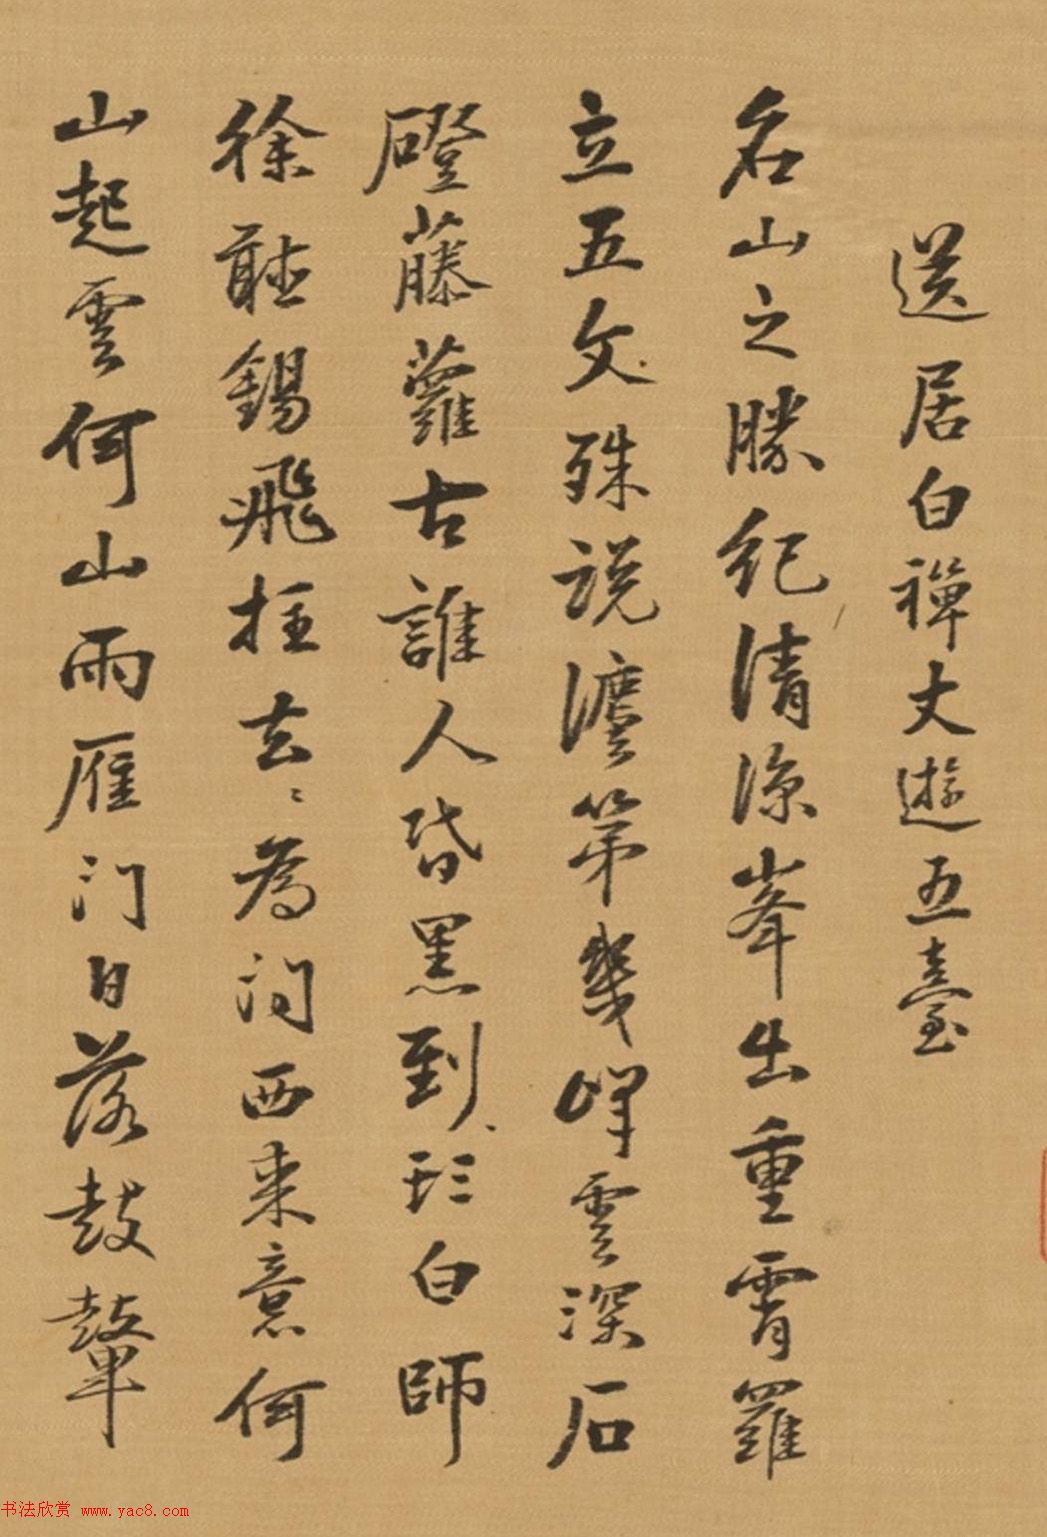 送居白禪丈遊五臺
名山之勝紀清涼峯出重霄羅
立五文殊說灋第幾峰雲深石
磴藤蘿古誰人昏黑到白師
徐聽錫飛拄去〻為問西來意何
山起雲何山雨雁門日落鼓鼙
书法欣赏 www.yac8.com